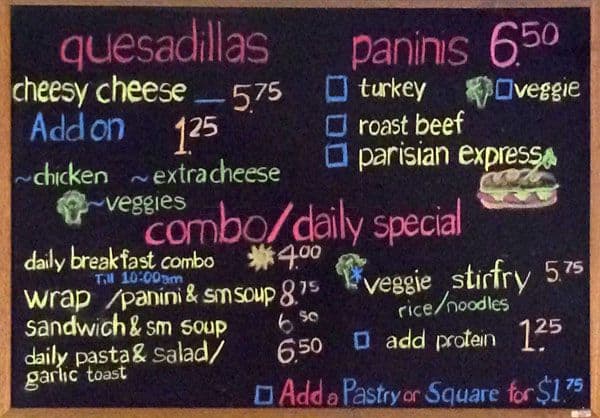 quesadillas
cheesy cheese 5.75
Add on 1.25
~chicken ~extra cheese
~veggies
paninis 6.50
turkey veggie
roast beef
parisian express
combo/daily special
daily breakfast combo 4.00
Till 10:00am
wrap /panini & sm soup 8.75
sandwich & sm soup 6.50
daily pasta & salad/ 6.50
garlic toast
veggie stirfry 5.75
rice/noodles
add protein 1.25
Add a Pastry or Square for $1.75